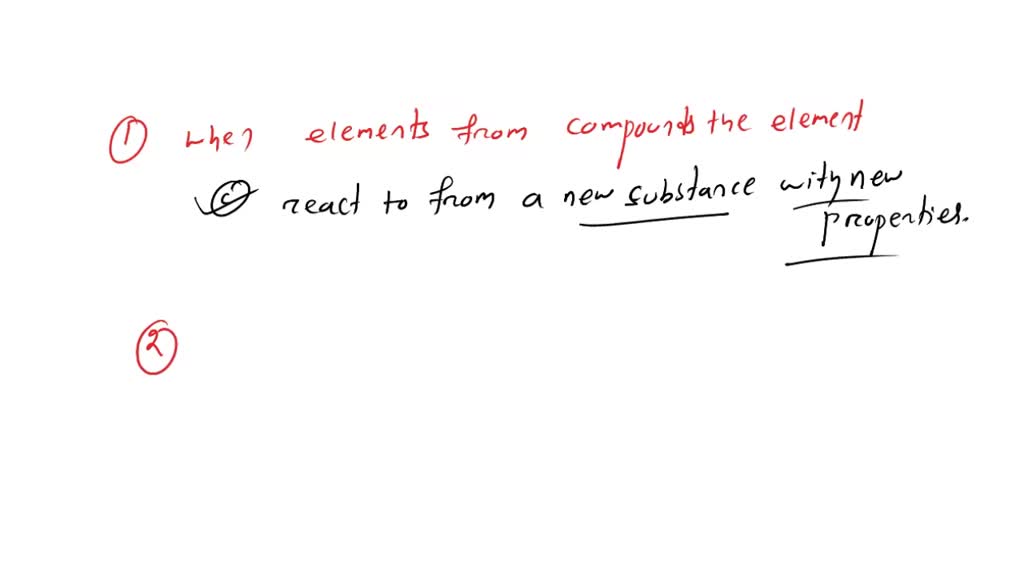 ① when elements from compounds the element
ⓒ react to from a new substance with new
properties.
②